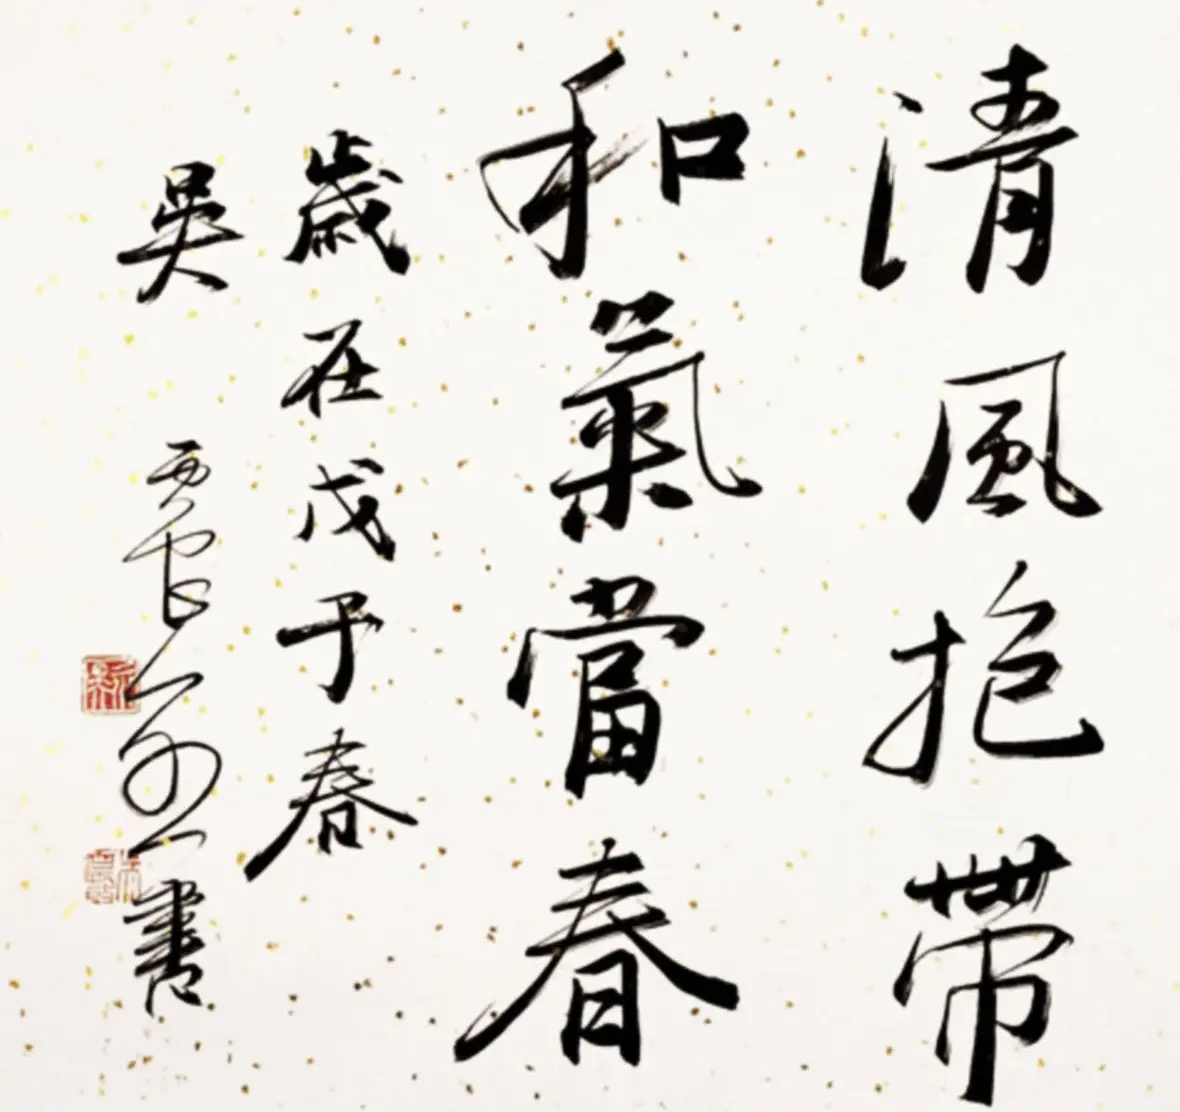 清風抱帶
和氣當春
歲在戊子春
吳
書